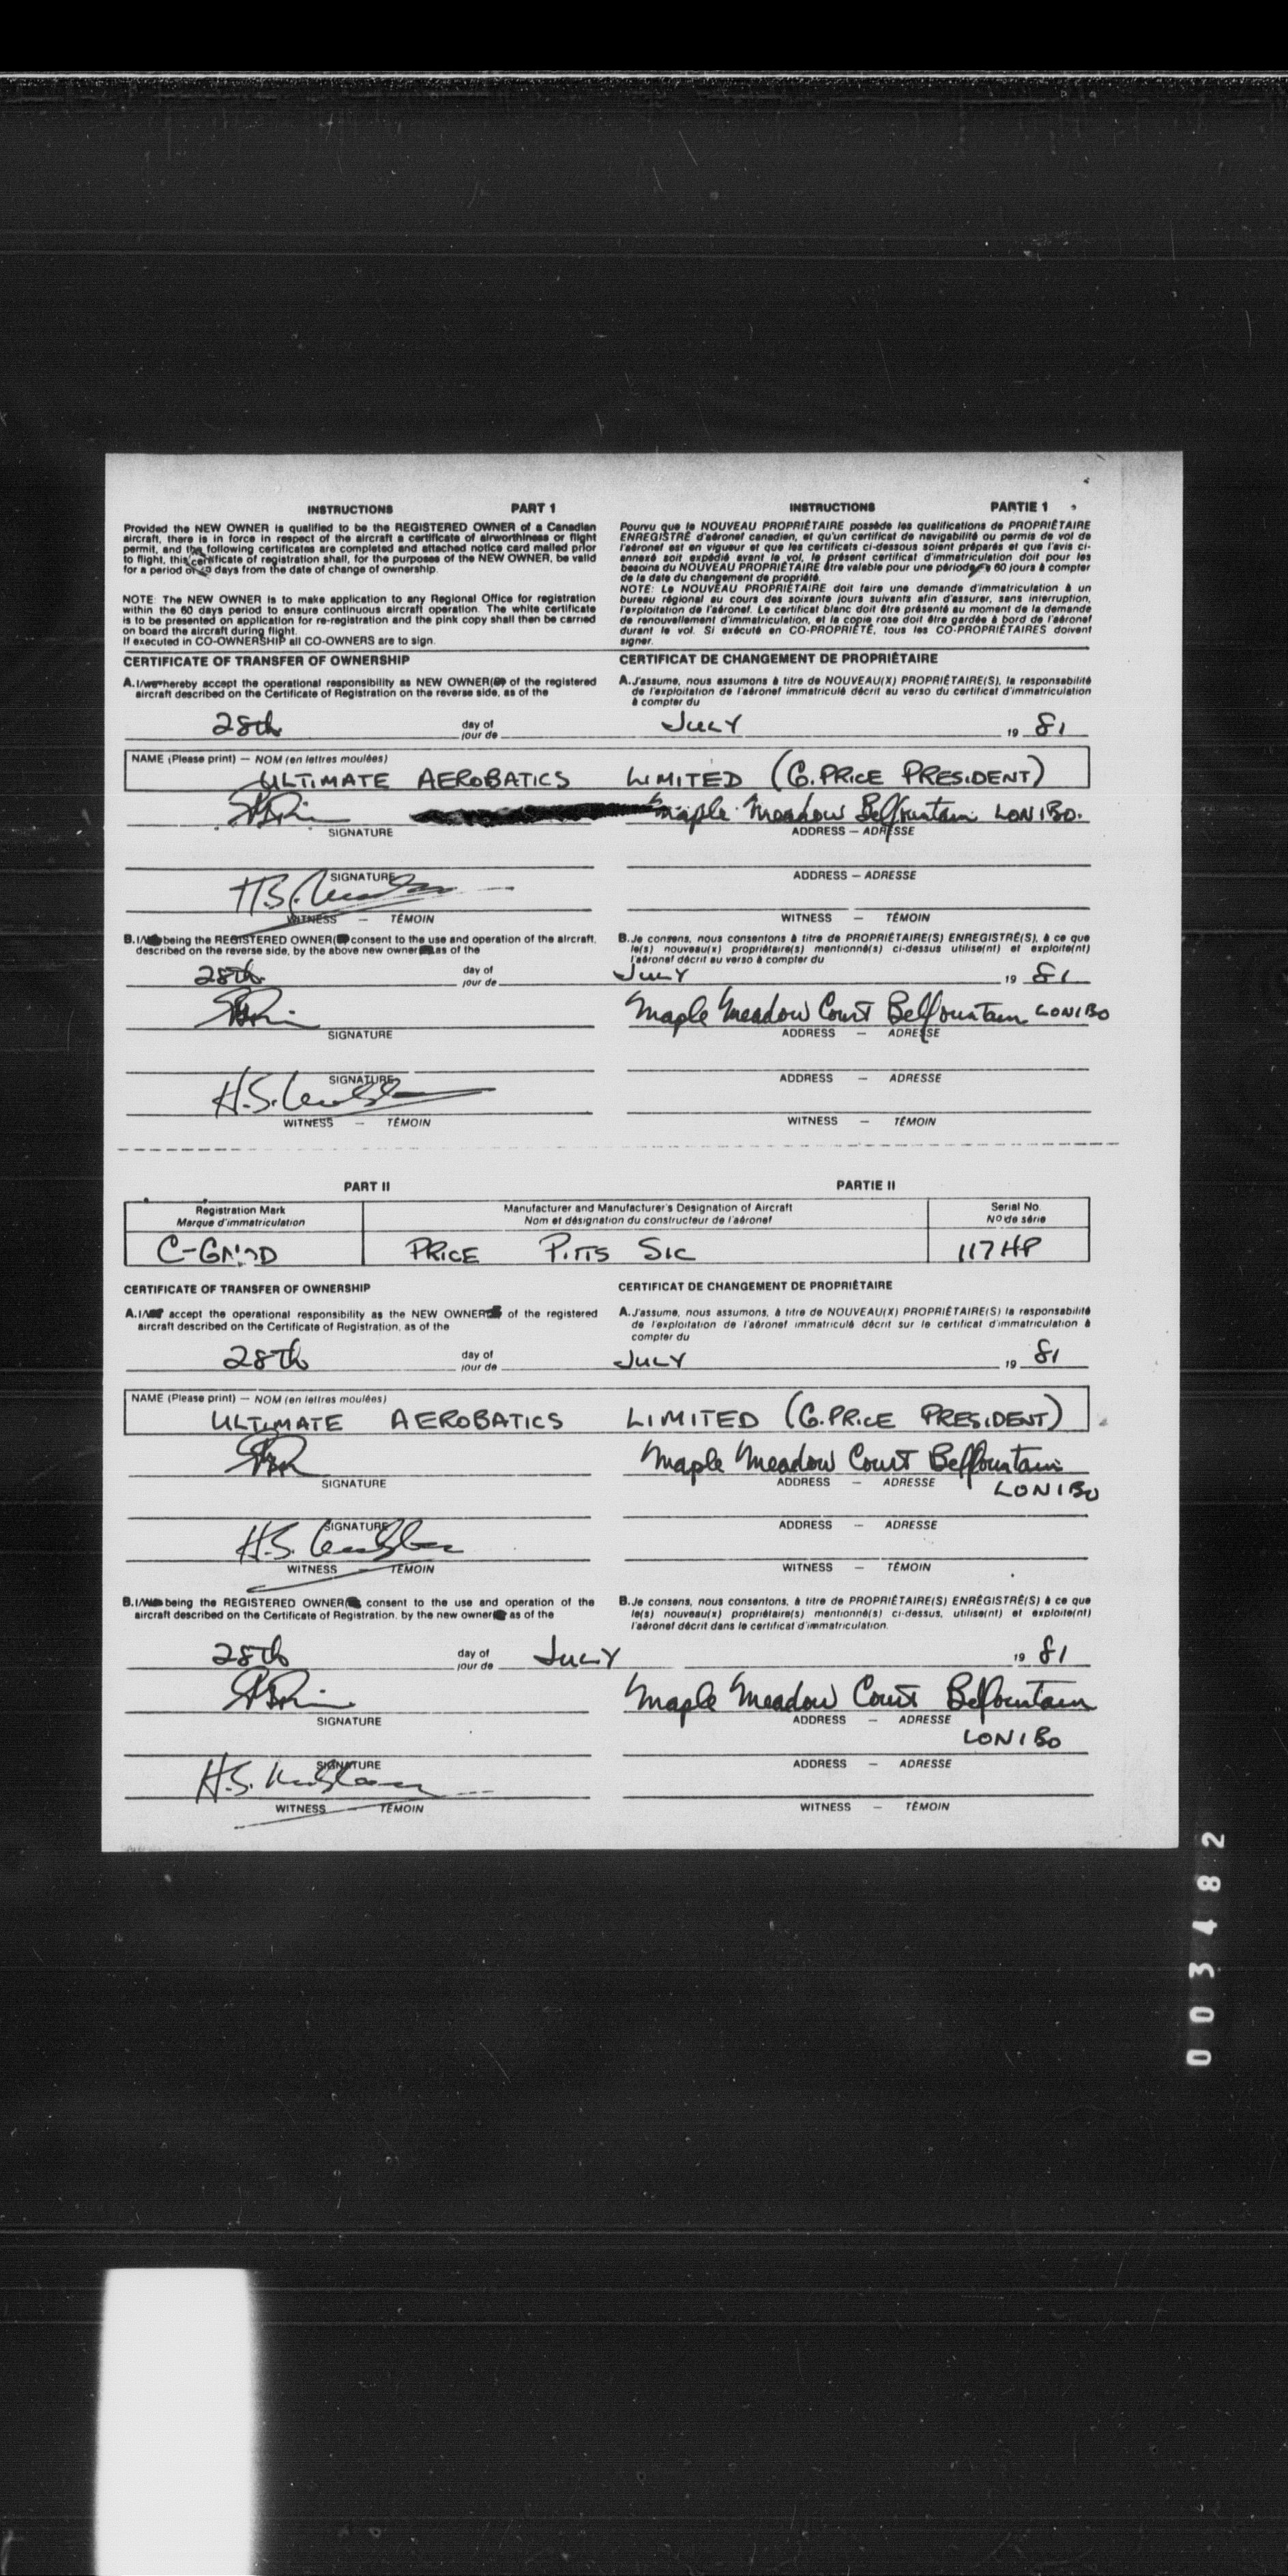 INSTRUCTIONS PART 1
Provided the NEW OWNER is qualified to be the REGISTERED OWNER of a Canadian
aircraft, there is in force in respect of the aircraft a certificate of airworthiness or flight
permit, and the following certificates are completed and attached notice card mailed prior
to flight, this certificate of registration shall, for the purposes of the NEW OWNER, be valid
for a period of days from the date of change of ownership.
NOTE: The NEW OWNER is to make application to any Regional Office for registration
within the 60 days period to ensure continuous aircraft operation. The white certificate
is to be presented on application for re-registration and the pink copy shall then be carried
on board the aircraft during flight.
If executed in CO-OWNERSHIP all CO-OWNERS are to sign.
INSTRUCTIONS PARTIE 1
Pourvu que le NOUVEAU PROPRIÉTAIRE possède les qualifications de PROPRIÉTAIRE
ENREGISTRÉ d'aéronef canadien, et qu'un certificat de navigabilité ou permis de vol de
l'aéronef est en vigueur et que les certificats ci-dessous soient préparés et que l'avis ci-
annexé soit expédié avant le vol, le présent certificat d'immatriculation doit pour les
besoins du NOUVEAU PROPRIÉTAIRE être valable pour une période 60 jours à compter
de la date du changement de propriété.
NOTE: Le NOUVEAU PROPRIÉTAIRE doit faire une demande d'immatriculation à un
bureau régional au cours des soixante jours suivants afin d'assurer, sans interruption,
l'exploitation de l'aéronef. Le certificat blanc doit être présenté au moment de la demande
de renouvellement d'immatriculation, et la copie rose doit être gardée à bord de l'aéronef
durant le vol. Si exécuté en CO-PROPRIÉTÉ, tous les CO-PROPRIÉTAIRES doivent
signer.
CERTIFICATE OF TRANSFER OF OWNERSHIP
CERTIFICAT DE CHANGEMENT DE PROPRIÉTAIRE
A. I/we hereby accept the operational responsibility as NEW OWNER(S) of the registered
aircraft described on the Certificate of Registration on the reverse side, as of the
A. J'assume, nous assumons à titre de NOUVEAU(X) PROPRIÉTAIRE(S), la responsabilité
de l'exploitation de l'aéronef immatriculé décrit au verso du certificat d'immatriculation
à compter du
28th day of JULY 19 81
jour de
NAME (Please print) — NOM (en lettres moulées)
ULTIMATE AEROBATICS LIMITED (G. PRICE PRESIDENT)
Maple Meadow Belfountain LON1BO.
SIGNATURE ADDRESS — ADRESSE
SIGNATURE ADDRESS — ADRESSE
WITNESS — TÉMOIN WITNESS — TÉMOIN
B. I/ being the REGISTERED OWNER( consent to the use and operation of the aircraft,
described on the reverse side, by the above new owner as of the
B. Je consens, nous consentons à titre de PROPRIÉTAIRE(S) ENREGISTRÉ(S), à ce que
le(s) nouveau(x) propriétaire(s) mentionné(s) ci-dessus utilise(nt) et exploite(nt)
l'aéronef décrit au verso à compter du
28th day of JULY 19 81
jour de
Maple Meadow Court Belfountain LON1BO
SIGNATURE ADDRESS — ADRESSE
SIGNATURE ADDRESS — ADRESSE
H.S.
WITNESS — TÉMOIN WITNESS — TÉMOIN
PART II PARTIE II
Registration Mark Manufacturer and Manufacturer's Designation of Aircraft Serial No.
Marque d'immatriculation Nom et désignation du constructeur de l'aéronef No de série
PRICE PITTS S1C 117HP
CERTIFICATE OF TRANSFER OF OWNERSHIP
CERTIFICAT DE CHANGEMENT DE PROPRIÉTAIRE
A. I/ accept the operational responsibility as the NEW OWNER of the registered
aircraft described on the Certificate of Registration, as of the
A. J'assume, nous assumons, à titre de NOUVEAU(X) PROPRIÉTAIRE(S) la responsabilité
de l'exploitation de l'aéronef immatriculé décrit sur le certificat d'immatriculation à
compter du
28th day of JULY 19 81
jour de
NAME (Please print) — NOM (en lettres moulées)
ULTIMATE AEROBATICS LIMITED (G. PRICE PRESIDENT)
Maple Meadow Court Belfountain
SIGNATURE ADDRESS — ADRESSE
LON1BO
SIGNATURE ADDRESS — ADRESSE
H.S.
WITNESS — TÉMOIN WITNESS — TÉMOIN
B. I/ being the REGISTERED OWNER( consent to the use and operation of the
aircraft described on the Certificate of Registration, by the new owner as of the
B. Je consens, nous consentons, à titre de PROPRIÉTAIRE(S) ENRÉGISTRÉ(S) à ce que
le(s) nouveau(x) propriétaire(s) mentionné(s) ci-dessus, utilise(nt) et exploite(nt)
l'aéronef décrit dans le certificat d'immatriculation.
28th day of JULY 19 81
jour de
Maple Meadow Court Belfountain
SIGNATURE ADDRESS — ADRESSE
LON1BO
SIGNATURE ADDRESS — ADRESSE
H.S.
WITNESS — TÉMOIN WITNESS — TÉMOIN
003482